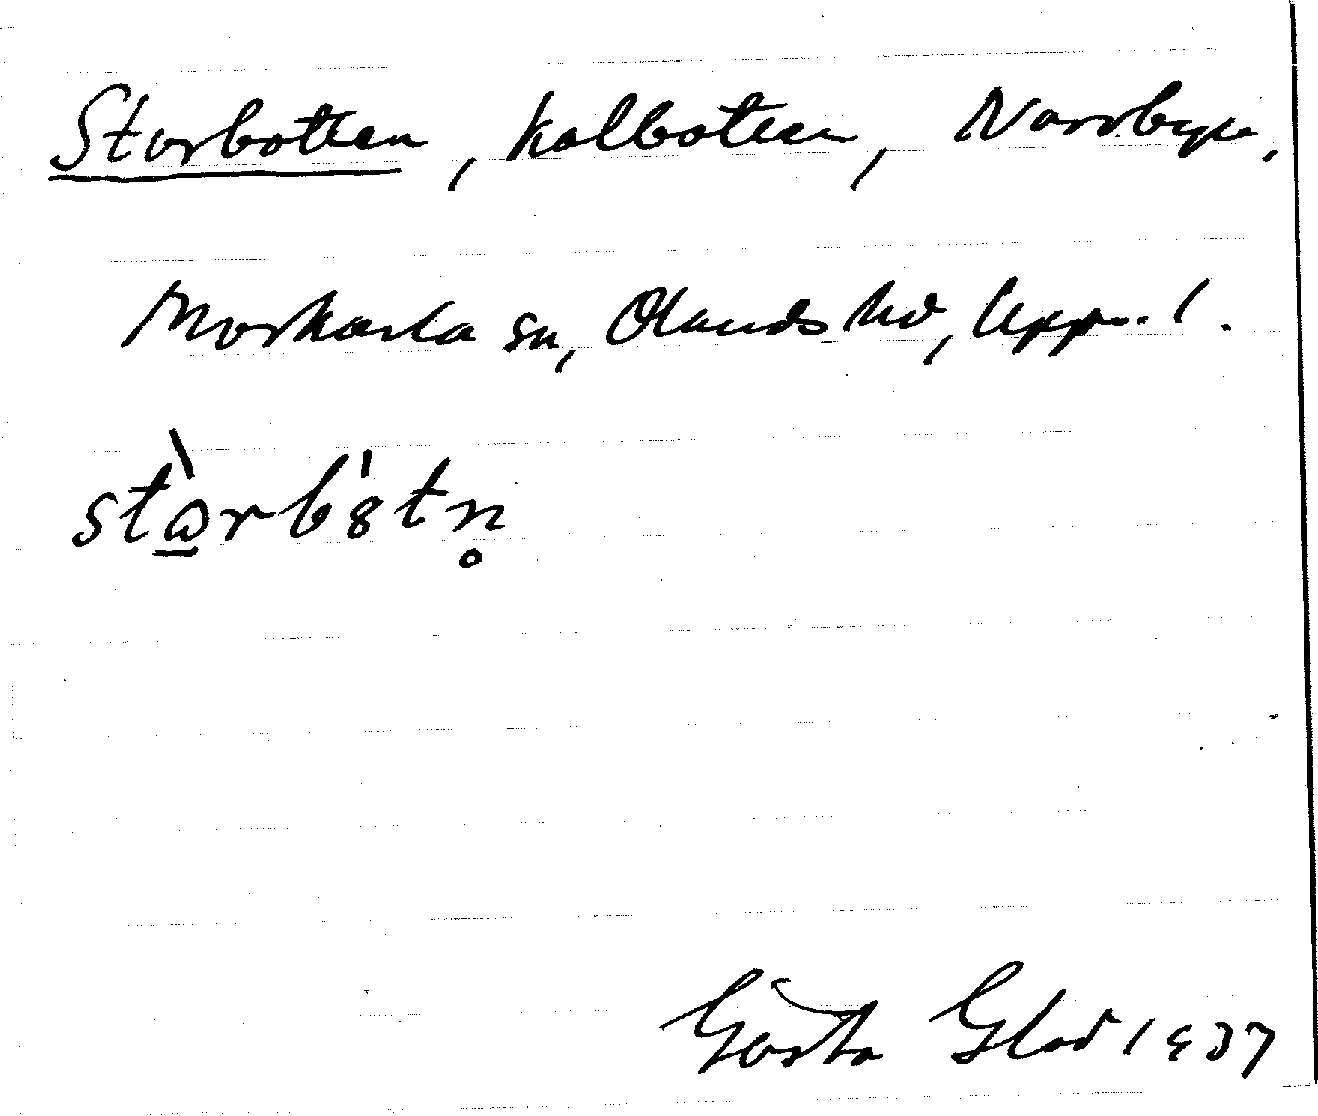 Storbotten, kolbotten, Norrbyn,
Morkarla sn, Olands hd, Uppl.
stɷ̀rb8̍tn̥
Gösta Glad 1937